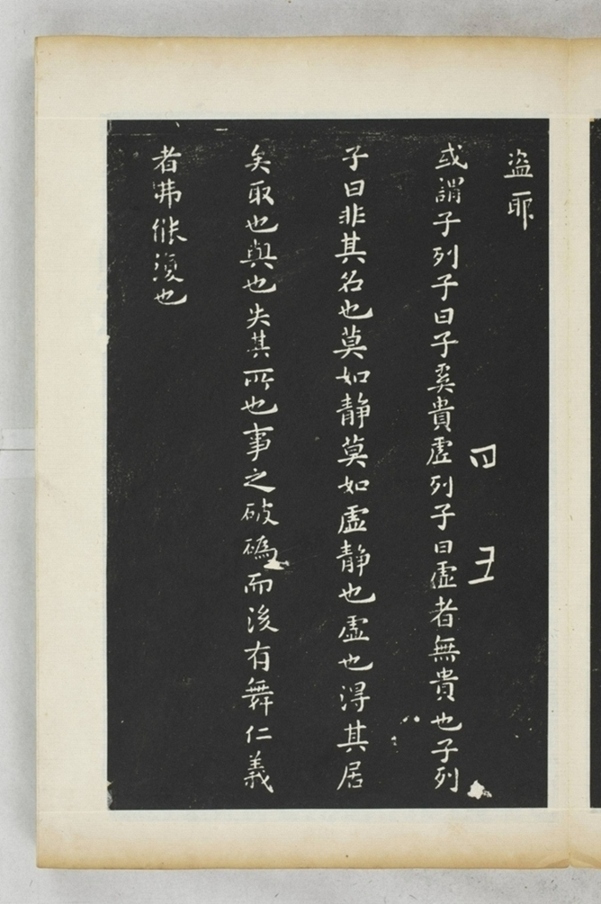 盗耶
或謂子列子曰子奚貴虛列子曰虛者無貴也子列
子曰非其名也莫如静莫如虛静也虛也淂其居
矣取也與也失其所也事之破䃣而後有舞仁義
者弗能復也